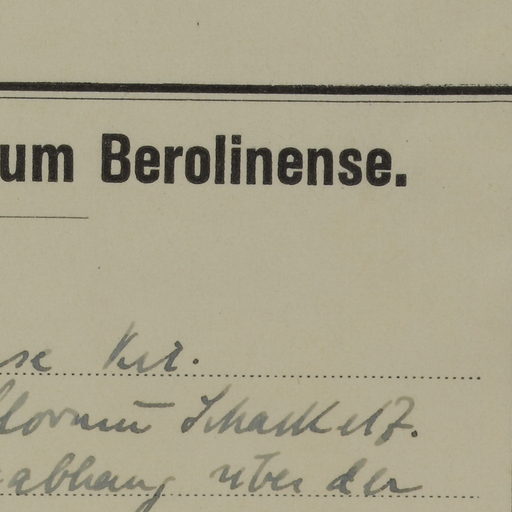 um Berolinense.
se Krt.
florum Schackelf.
abhang über der